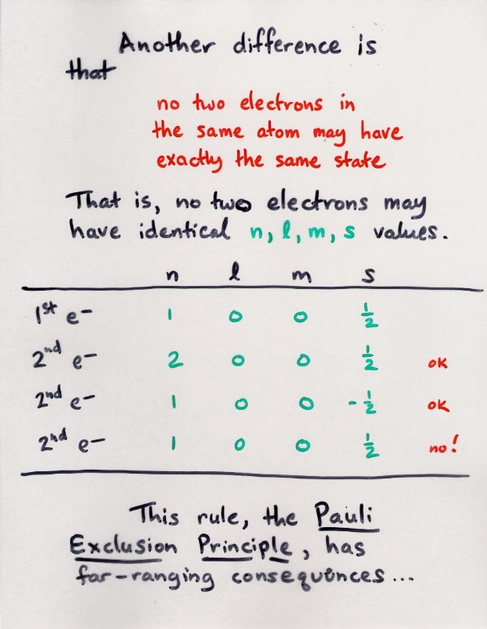 Another difference is
that
no two electrons in
the same atom may have
exactly the same state
That is, no two electrons may
have identical n, l, m, s values.
n l m s
1st e- 1 0 0 1/2
2nd e- 2 0 0 1/2 OK
2nd e- 1 0 0 -1/2 OK
2nd e- 1 0 0 1/2 no!
This rule, the Pauli
Exclusion Principle, has
far-ranging consequences...